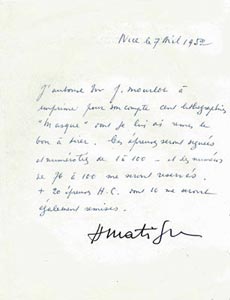 Nice le 7 Avril 1952
J'autorise Mr F. Mourlot à
imprimer pour son compte cent lithographies
"Masque" dont je lui ai remis le
bon à tirer. Ces épreuves seront signées
et numérotées de 1 à 100 – et les numéros
de 76 à 100 me seront réservés.
+ 20 épreuves H.C. dont 10 me seront
également remises.
H Matisse